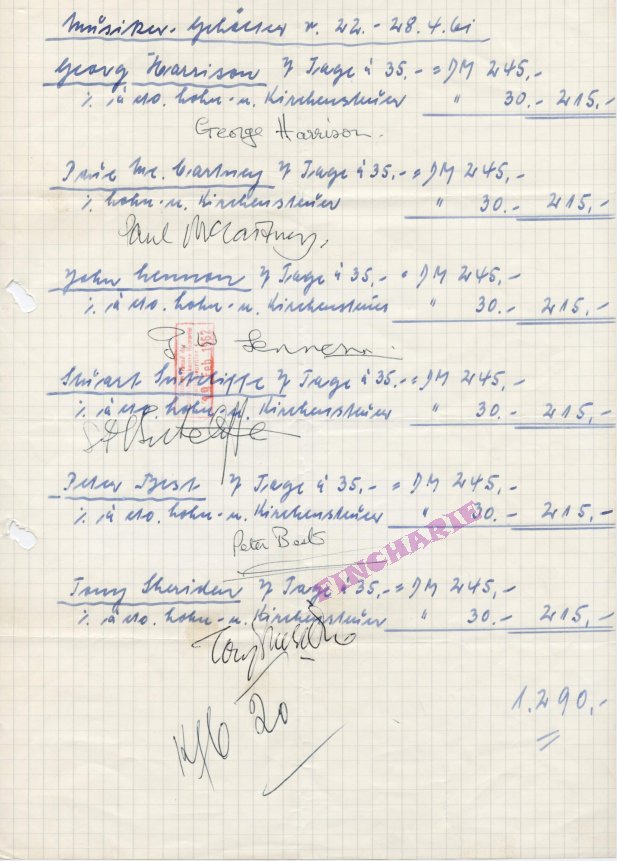 Musiker-Gehälter v. 22.-28.4.61
Georg Harrison 7 Tage à 35,- = DM 245,-
% à cto. Lohn- u. Kirchensteuer " 30.- 215,-
George Harrison.
Mc. Cartney 7 Tage à 35,- = DM 245,-
% Lohn- u. Kirchensteuer " 30.- 215,-
Paul McCartney.
John Lennon 7 Tage à 35,- = DM 245,-
% à cto. Lohn- u. Kirchensteuer " 30.- 215,-
Lennon
Feb. 1962
Stuart Sutcliffe 7 Tage à 35,- = DM 245,-
% à cto. Lohn- u. Kirchensteuer " 30.- 215,-
Sutcliffe
Peter Best 7 Tage à 35,- = DM 245,-
% à cto. Lohn- u. Kirchensteuer " 30.- 215,-
Peter Best
FINCHARIE
Tony Sheriden 7 Tage à 35,- = DM 245,-
% à cto. Lohn- u. Kirchensteuer " 30.- 215,-
Tony Sheridan
1.290,-
20